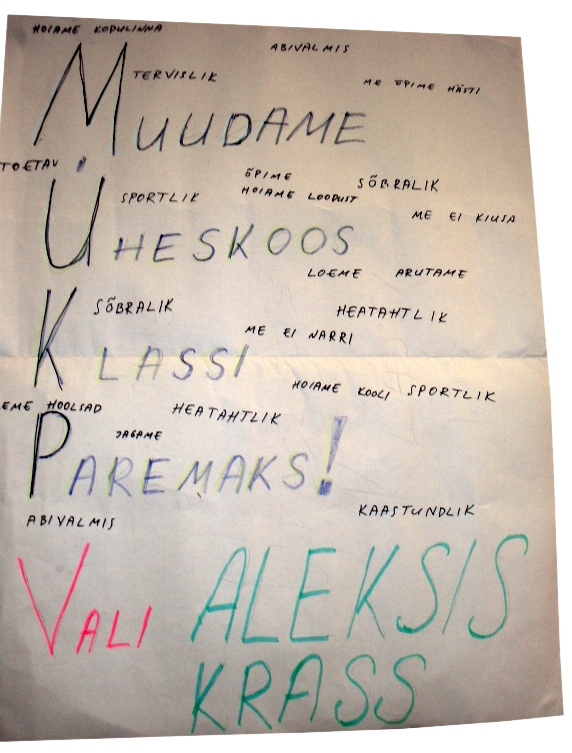 HOIAME KODULINNA
ABIVALMIS
TERVISLIK
ME ÕPIME HÄSTI
MUUDAME
TOETAV
ÕPIME
SÕBRALIK
SPORTLIK
HOIAME LOODUST
ME EI KIUSA
ÜHESKOOS
LOEME ARUTAME
SÕBRALIK
HEATAHTLIK
ME EI NARRI
KLASSI
HOIAME KOOLI SPORTLIK
HOOLSAD
HEATAHTLIK
JAGAME
PAREMAKS!
ABIVALMIS
KAASTUNDLIK
VALI ALEKSIS
KRASS